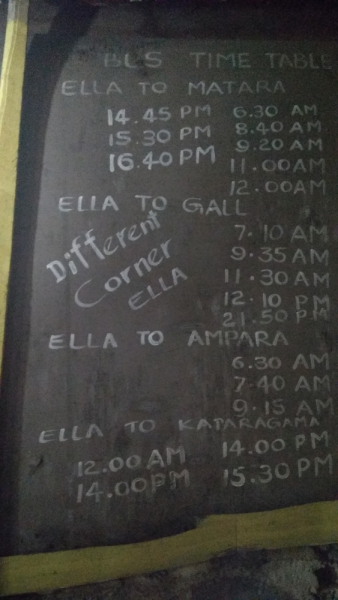 BUS TIME TABLE
ELLA TO MATARA
14.45 PM 6.30 AM
15.30 PM 8.40 AM
16.40 PM 9.20 AM
11.00 AM
12.00 AM
ELLA TO GALL
7.10 AM
9.35 AM
11.30 AM
12.10 PM
21.50 PM
Different
Corner
ELLA
ELLA TO AMPARA
6.30 AM
7.40 AM
9.15 AM
ELLA TO KATARAGAMA
12.00 AM 14.00 PM
14.00 PM 15.30 PM